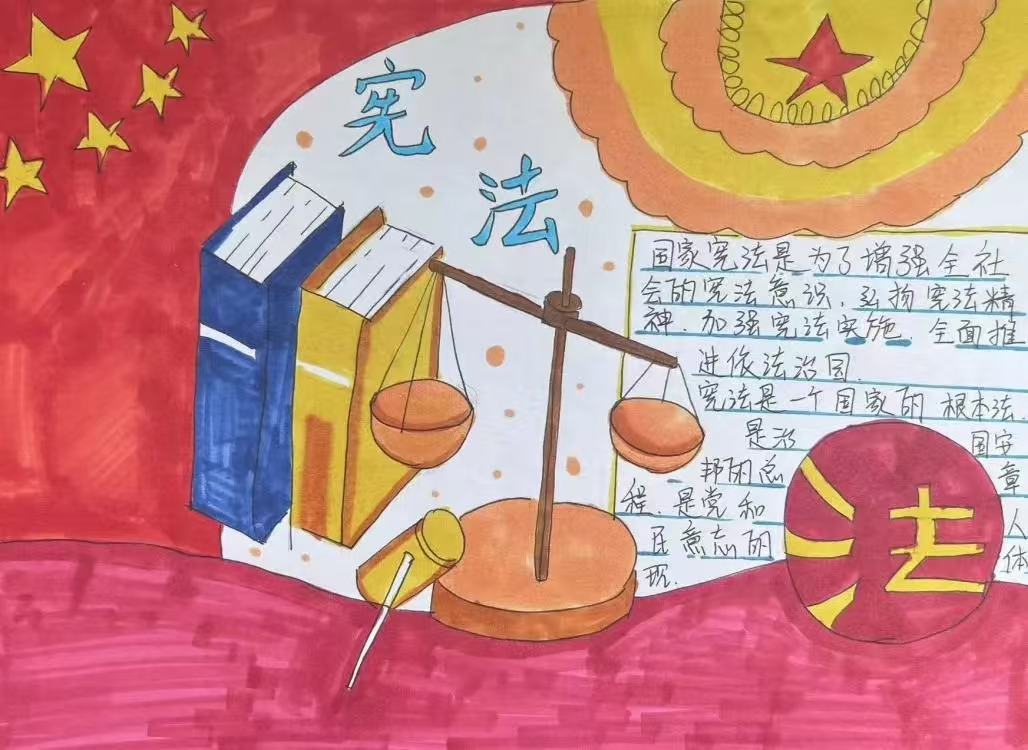 宪法
国家宪法是为了增强全社
会的宪法意识.弘扬宪法精
神.加强宪法实施.全面推
进依法治国.
宪法是一个国家的根本法.
是治 国安
邦的总 章
程.是党和 人
民意志的 体
现.
法